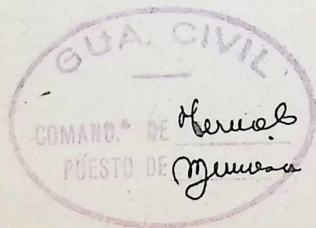 GUA. CIVIL
COMAND.ª DE Teruel
PUESTO DE